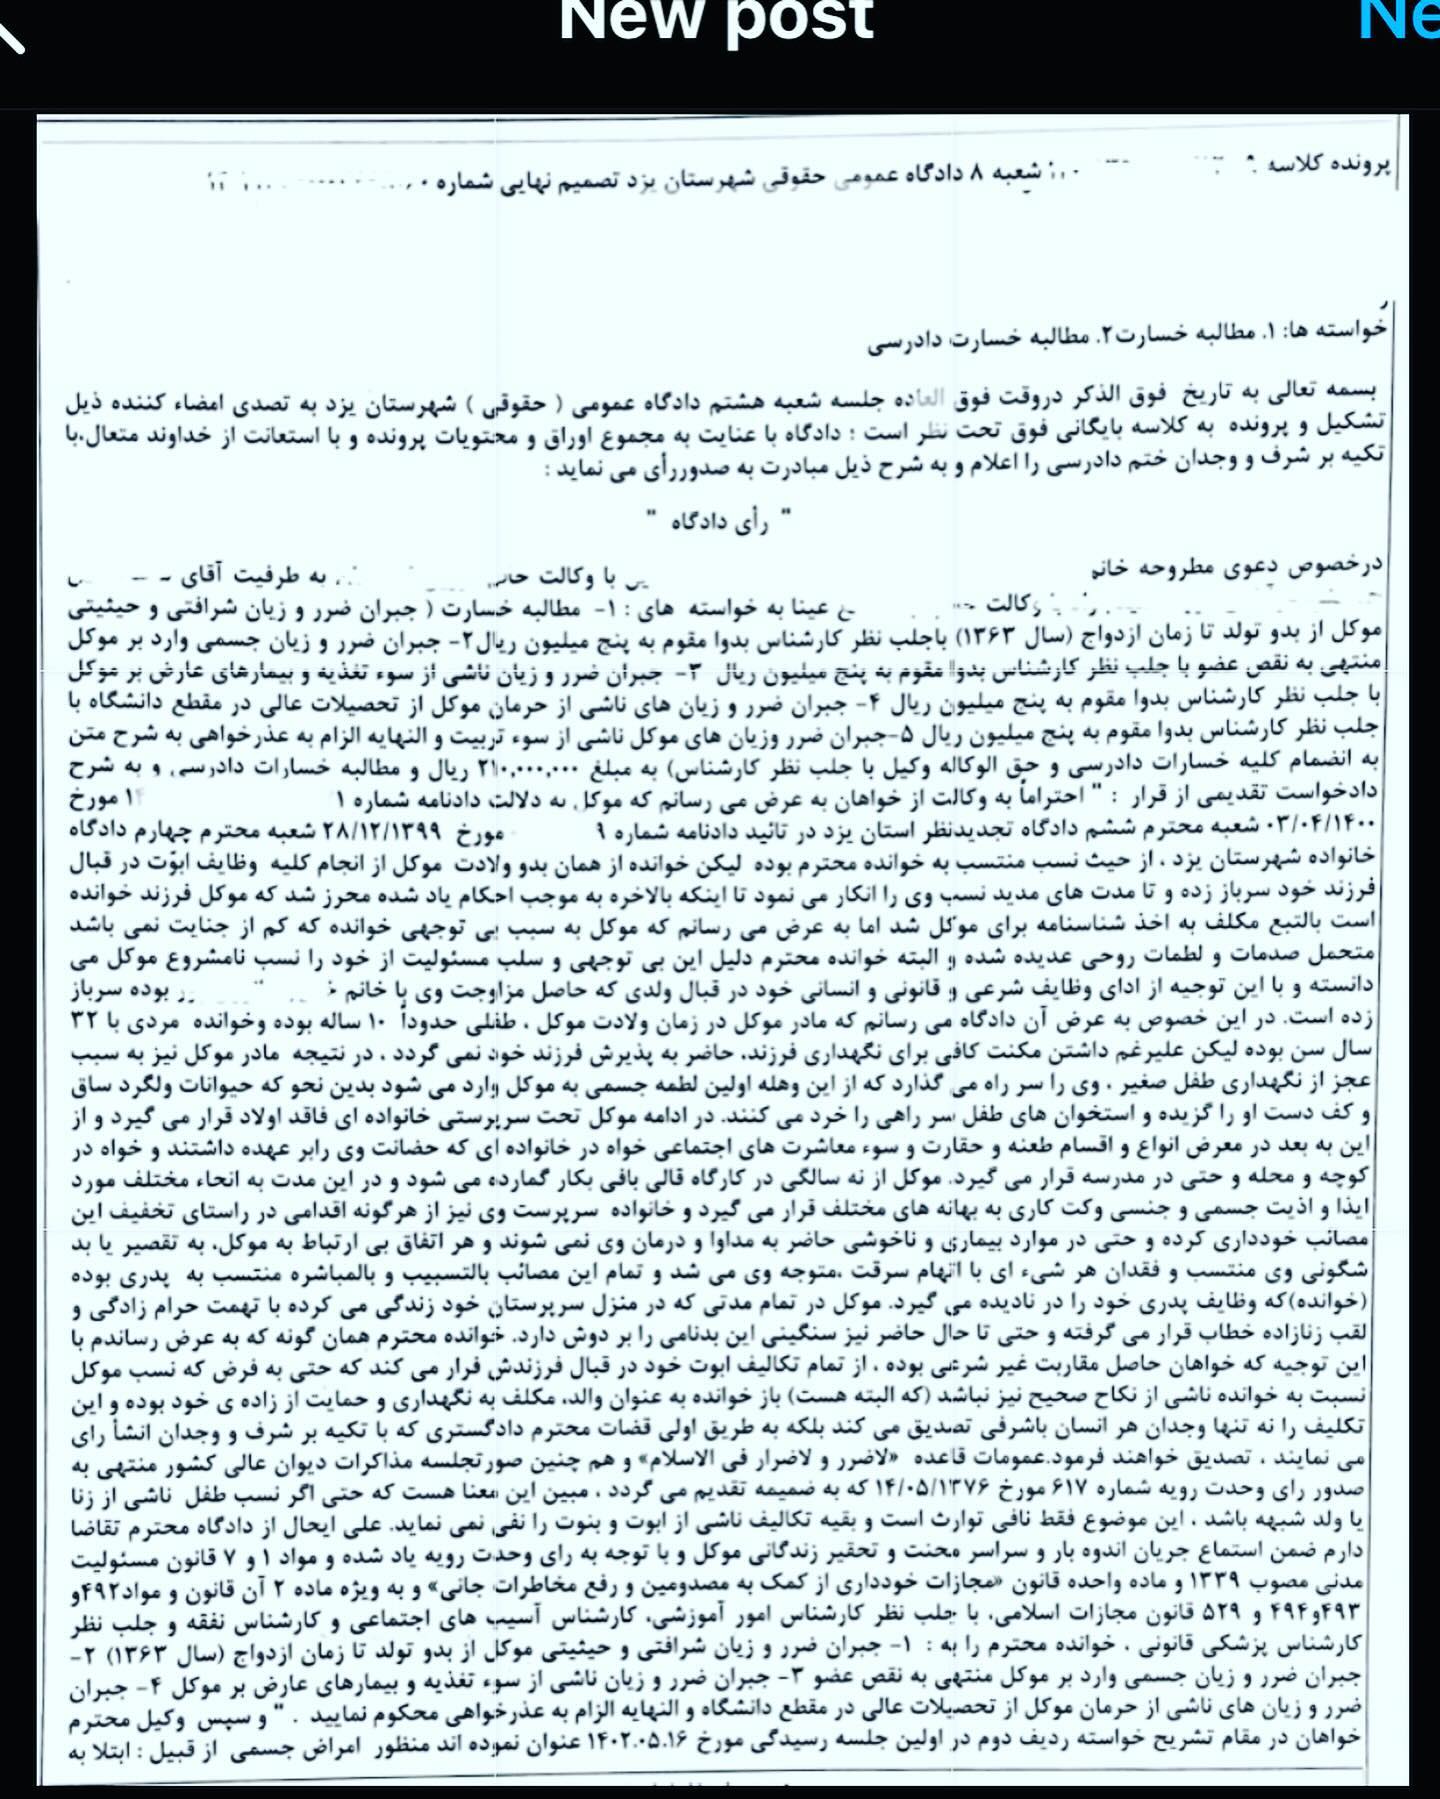 New post
Ne
پرونده کلاسه شعبه ۸ دادگاه عمومی حقوقی شهرستان یزد تصمیم نهایی شماره
خواسته ها: ۱. مطالبه خسارت۲. مطالبه خسارت دادرسی
بسمه تعالی به تاریخ فوق الذکر دروقت فوق العاده جلسه شعبه هشتم دادگاه عمومی ( حقوقی ) شهرستان یزد به تصدی امضاء کننده ذیل
تشکیل و پرونده به کلاسه بایگانی فوق تحت نظر است : دادگاه با عنایت به مجموع اوراق و محتویات پرونده و با استعانت از خداوند متعال،با
تکیه بر شرف و وجدان ختم دادرسی را اعلام و به شرح ذیل مبادرت به صدوررأی می نماید :
" رأی دادگاه "
درخصوص دعوی مطروحه خانم با وکالت به طرفیت آقای
وکالت عینا به خواسته های : ۱- مطالبه خسارت ( جبران ضرر و زیان شرافتی و حیثیتی
موکل از بدو تولد تا زمان ازدواج (سال ۱۳۶۳) باجلب نظر کارشناس بدوا مقوم به پنج میلیون ریال۲- جبران ضرر و زیان جسمی وارد بر موکل
منتهی به نقص عضو با جلب نظر کارشناس بدوا مقوم به پنج میلیون ریال ۳- جبران ضرر و زیان ناشی از سوء تغذیه و بیمارهای عارض بر موکل
با جلب نظر کارشناس بدوا مقوم به پنج میلیون ریال ۴- جبران ضرر و زیان های ناشی از حرمان موکل از تحصیلات عالی در مقطع دانشگاه با
جلب نظر کارشناس بدوا مقوم به پنج میلیون ریال ۵-جبران ضرر وزیان های موکل ناشی از سوء تربیت و النهایه الزام به عذرخواهی به شرح متن
به انضمام کلیه خسارات دادرسی و حق الوکاله وکیل با جلب نظر کارشناس) به مبلغ ۲۱۰,۰۰۰,۰۰۰ ریال و مطالبه خسارات دادرسی و به شرح
دادخواست تقدیمی از قرار : " احتراماً به وکالت از خواهان به عرض می رسانم که موکل به دلالت دادنامه شماره مورخ
۰۳/۰۴/۱۴۰۰ شعبه محترم ششم دادگاه تجدیدنظر استان یزد در تائید دادنامه شماره ۹ مورخ ۲۸/۱۲/۱۳۹۹ شعبه محترم چهارم دادگاه
خانواده شهرستان یزد ، از حیث نسب منتسب به خوانده محترم بوده لیکن خوانده از همان بدو ولادت موکل از انجام کلیه وظایف ابوّت در قبال
فرزند خود سرباز زده و تا مدت های مدید نسب وی را انکار می نمود تا اینکه بالاخره به موجب احکام یاد شده محرز شد که موکل فرزند خوانده
است بالتبع مکلف به اخذ شناسنامه برای موکل شد اما به عرض می رسانم که موکل به سبب بی توجهی خوانده که کم از جنایت نمی باشد
متحمل صدمات و لطمات روحی عدیده شده و البته خوانده محترم دلیل این بی توجهی و سلب مسئولیت از خود را نسب نامشروع موکل می
دانسته و با این توجیه از ادای وظایف شرعی و قانونی و انسانی خود در قبال ولدی که حاصل مزاوجت وی با خانم بوده سرباز
زده است. در این خصوص به عرض آن دادگاه می رسانم که مادر موکل در زمان ولادت موکل ، طفلی حدوداً ۱۰ ساله بوده وخوانده مردی با ۳۲
سال سن بوده لیکن علیرغم داشتن مکنت کافی برای نگهداری فرزند، حاضر به پذیرش فرزند خود نمی گردد ، در نتیجه مادر موکل نیز به سبب
عجز از نگهداری طفل صغیر ، وی را سر راه می گذارد که از این وهله اولین لطمه جسمی به موکل وارد می شود بدین نحو که حیوانات ولگرد ساق
و کف دست او را گزیده و استخوان های طفل سر راهی را خرد می کنند. در ادامه موکل تحت سرپرستی خانواده ای فاقد اولاد قرار می گیرد و از
این به بعد در معرض انواع و اقسام طعنه و حقارت و سوء معاشرت های اجتماعی خواه در خانواده ای که حضانت وی رابر عهده داشتند و خواه در
کوچه و محله و حتی در مدرسه قرار می گیرد. موکل از نه سالگی در کارگاه قالی بافی بکار گمارده می شود و در این مدت به انحاء مختلف مورد
ایذا و اذیت جسمی و جنسی وکت کاری به بهانه های مختلف قرار می گیرد و خانواده سرپرست وی نیز از هرگونه اقدامی در راستای تخفیف این
مصائب خودداری کرده و حتی در موارد بیماری و ناخوشی حاضر به مداوا و درمان وی نمی شوند و هر اتفاق بی ارتباط به موکل، به تقصیر یا بد
شگونی وی منتسب و فقدان هر شیء ای با اتهام سرقت ،متوجه وی می شد و تمام این مصائب بالتسبیب و بالمباشره منتسب به پدری بوده
(خوانده)که وظایف پدری خود را در نادیده می گیرد. موکل در تمام مدتی که در منزل سرپرستان خود زندگی می کرده با تهمت حرام زادگی و
لقب زنازاده خطاب قرار می گرفته و حتی تا حال حاضر نیز سنگینی این بدنامی را بر دوش دارد. خوانده محترم همان گونه که به عرض رساندم با
این توجیه که خواهان حاصل مقاربت غیر شرعی بوده ، از تمام تکالیف ابوت خود در قبال فرزندش فرار می کند که حتی به فرض که نسب موکل
نسبت به خوانده ناشی از نکاح صحیح نیز نباشد (که البته هست) باز خوانده به عنوان والد، مکلف به نگهداری و حمایت از زاده ی خود بوده و این
تکلیف را نه تنها وجدان هر انسان باشرفی تصدیق می کند بلکه به طریق اولی قضات محترم دادگستری که با تکیه بر شرف و وجدان انشأ رای
می نمایند ، تصدیق خواهند فرمود.عمومات قاعده «لاضرر و لاضرار فی الاسلام» و هم چنین صورتجلسه مذاکرات دیوان عالی کشور منتهی به
صدور رای وحدت رویه شماره ۶۱۷ مورخ ۱۴/۰۵/۱۳۷۶ که به ضمیمه تقدیم می گردد ، مبین این معنا هست که حتی اگر نسب طفل ناشی از زنا
یا ولد شبهه باشد ، این موضوع فقط نافی توارث است و بقیه تکالیف ناشی از ابوت و بنوت را نفی نمی نماید. علی ایحال از دادگاه محترم تقاضا
دارم ضمن استماع جریان اندوه بار و سراسر محنت و تحقیر زندگانی موکل و با توجه به رای وحدت رویه یاد شده و مواد ۱ و ۷ قانون مسئولیت
مدنی مصوب ۱۳۳۹ و ماده واحده قانون «مجازات خودداری از کمک به مصدومین و رفع مخاطرات جانی» و به ویژه ماده ۲ آن قانون و مواد۴۹۲و
۴۹۳و۴۹۴ و ۵۲۹ قانون مجازات اسلامی، با جلب نظر کارشناس امور آموزشی، کارشناس آسیب های اجتماعی و کارشناس نفقه و جلب نظر
کارشناس پزشکی قانونی ، خوانده محترم را به : ۱- جبران ضرر و زیان شرافتی و حیثیتی موکل از بدو تولد تا زمان ازدواج (سال ۱۳۶۳) ۲-
جبران ضرر و زیان جسمی وارد بر موکل منتهی به نقص عضو ۳- جبران ضرر و زیان ناشی از سوء تغذیه و بیمارهای عارض بر موکل ۴- جبران
ضرر و زیان های ناشی از حرمان موکل از تحصیلات عالی در مقطع دانشگاه و النهایه الزام به عذرخواهی محکوم نمایید . " و سپس وکیل محترم
خواهان در مقام تشریح خواسته ردیف دوم در اولین جلسه رسیدگی مورخ ۱۴۰۲.۰۵.۱۶ عنوان نموده اند منظور امراض جسمی از قبیل : ابتلا به